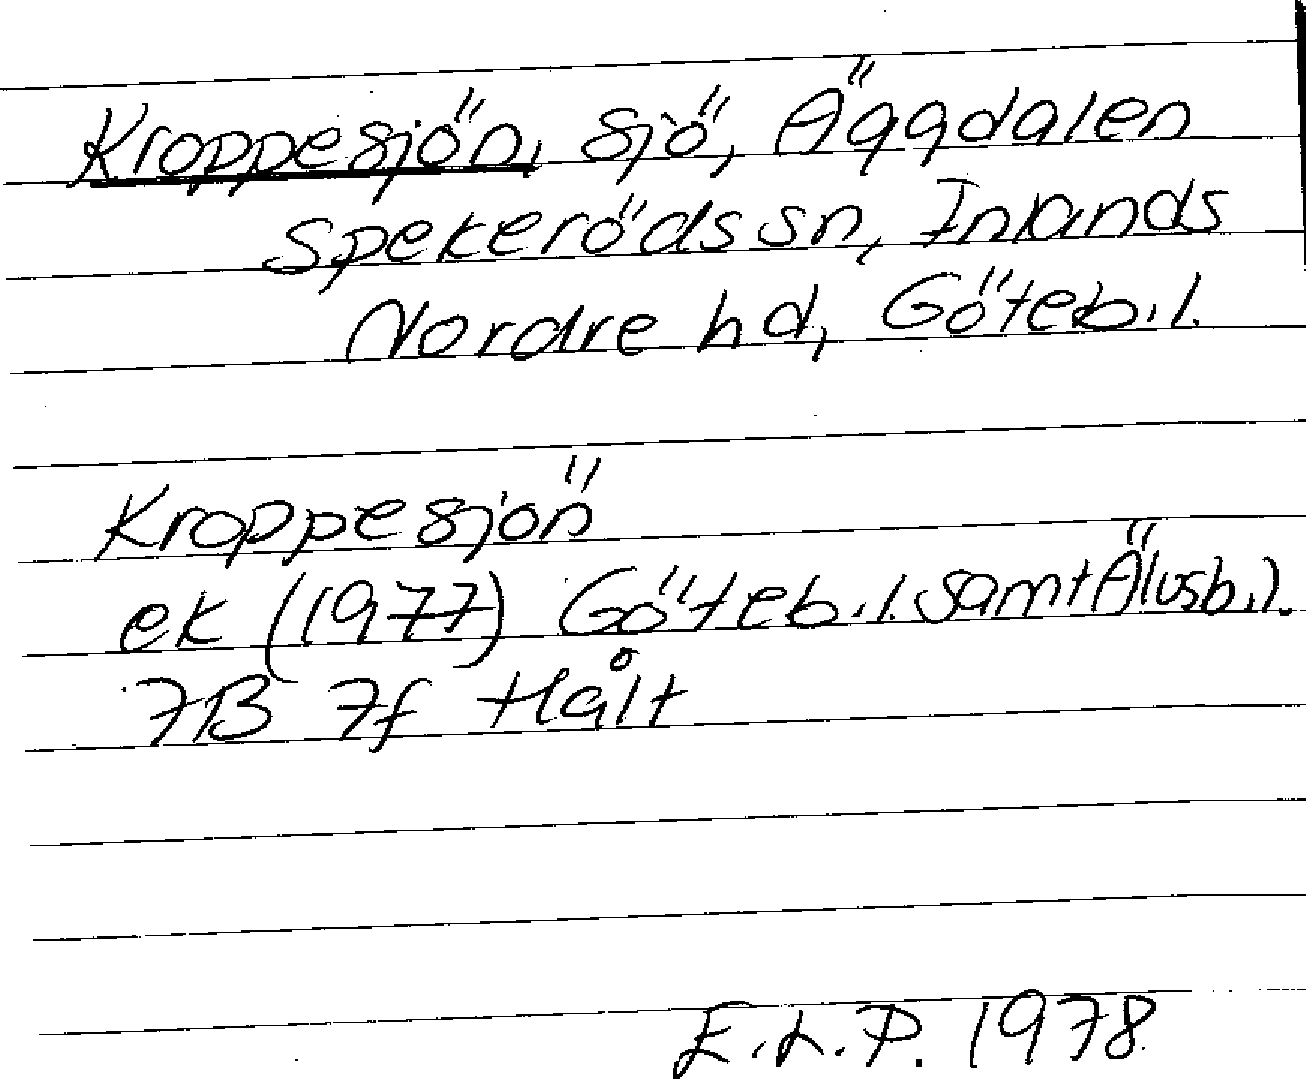 Kroppesjön, sjö, Äggdalen
Spekeröds sn, Inlands
Nordre hd, Göteb.l.
Kroppesjön
ek (1977) Göteb.l. samt Älvsb.l.
7B 7f Hålt
E.L.P. 1978